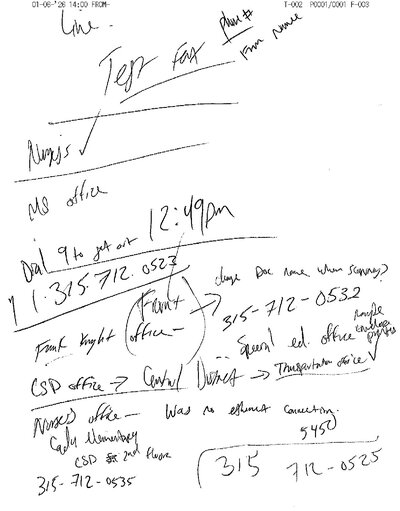 01-06-'26 14:00 FROM-
T-002 P0001/0001 F-003
Line.
phone #
Firm name
Test Fax
Nurses ✓
MS office
12:49pm
Dial 9 to get out
1 1-315-712-0523
Front office -
change Doc name when scanning
315-712-0532
Frank Knight
Special ed office
CSD office → Central District → Transportation office ✓
Nurses office - Was no ethernet connection.
Cady Elementary
5450
CSD 2nd floor
315-712-0535
315 712-0525